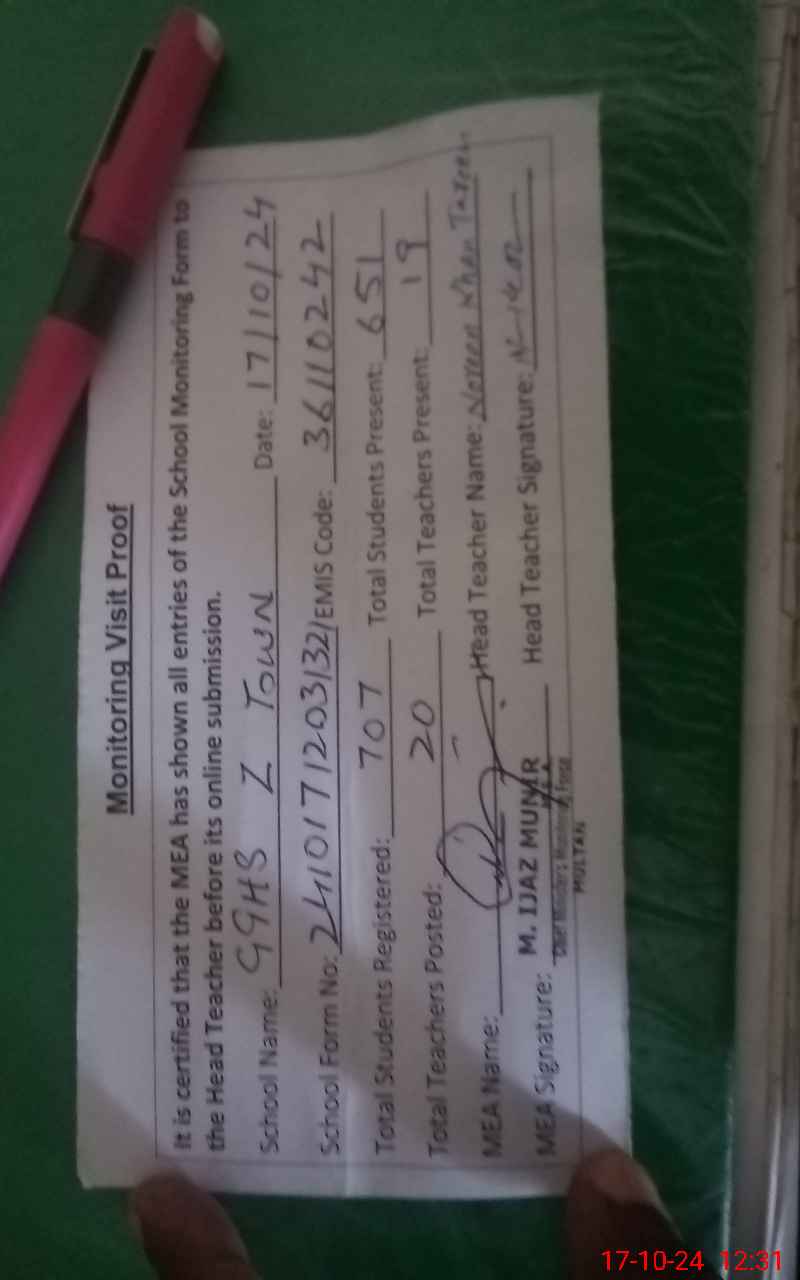 Monitoring Visit Proof
It is certified that the MEA has shown all entries of the School Monitoring Form to
the Head Teacher before its online submission.
School Name: GGHS Z TOWN Date: 17/10/24
School Form No: EMIS Code: 36110242
Total Students Registered: 707 Total Students Present: 651
Total Teachers Posted: 20 Total Teachers Present: 19
MEA Name: Head Teacher Name: Khan Tareen
MEA Signature: M. IJAZ MUNIR Head Teacher Signature:
Chief Minister's Monitoring Force
MULTAN
17-10-24 12:31